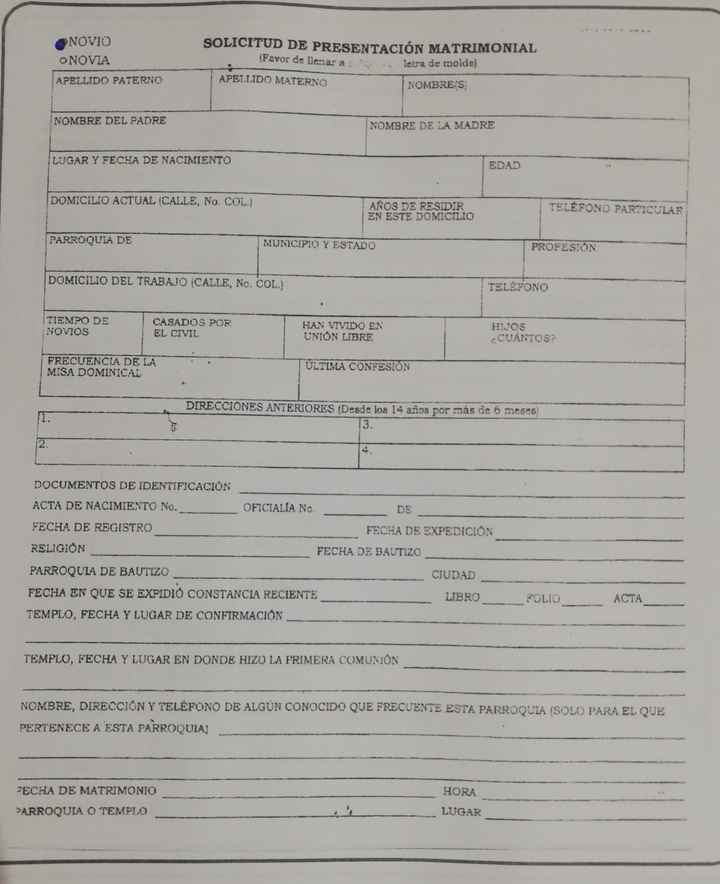 NOVIO
SOLICITUD DE PRESENTACIÓN MATRIMONIAL
NOVIA
(Favor de llenar a letra de molde)
APELLIDO PATERNO
APELLIDO MATERNO
NOMBRE(S)
NOMBRE DEL PADRE
NOMBRE DE LA MADRE
LUGAR Y FECHA DE NACIMIENTO
EDAD
DOMICILIO ACTUAL (CALLE, No. COL.)
AÑOS DE RESIDIR
EN ESTE DOMICILIO
TELÉFONO PARTICULAR
PARROQUIA DE
MUNICIPIO Y ESTADO
PROFESIÓN
DOMICILIO DEL TRABAJO (CALLE, No. COL.)
TELÉFONO
TIEMPO DE
NOVIOS
CASADOS POR
EL CIVIL
HAN VIVIDO EN
UNIÓN LIBRE
HIJOS
¿CUÁNTOS?
FRECUENCIA DE LA
MISA DOMINICAL
ÚLTIMA CONFESIÓN
DIRECCIONES ANTERIORES (Desde los 14 años por más de 6 meses)
1.
3.
2.
4.
DOCUMENTOS DE IDENTIFICACIÓN
ACTA DE NACIMIENTO No. OFICIALÍA No. DE
FECHA DE REGISTRO FECHA DE EXPEDICIÓN
RELIGIÓN FECHA DE BAUTIZO
PARROQUIA DE BAUTIZO CIUDAD
FECHA EN QUE SE EXPIDIÓ CONSTANCIA RECIENTE LIBRO FOLIO ACTA
TEMPLO, FECHA Y LUGAR DE CONFIRMACIÓN
TEMPLO, FECHA Y LUGAR EN DONDE HIZO LA PRIMERA COMUNIÓN
NOMBRE, DIRECCIÓN Y TELÉFONO DE ALGÚN CONOCIDO QUE FRECUENTE ESTA PARROQUIA (SOLO PARA EL QUE
PERTENECE A ESTA PARROQUIA)
FECHA DE MATRIMONIO HORA
PARROQUIA O TEMPLO LUGAR